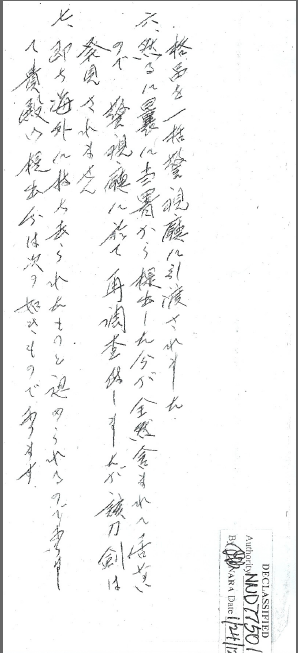 格品を一括警視廳に引渡されました
六、然るに曩に当署から提出した分が全然含まれて居ない
ので 警視廳に於て再調査致しましたが 該刀剣は
発見されません
七、即ち海外に持ち去られたものと認められるので ありまし
て貴殿の提出分は次の如きものであります
DECLASSIFIED
Authority NND 77501
By NARA Date 1/24/